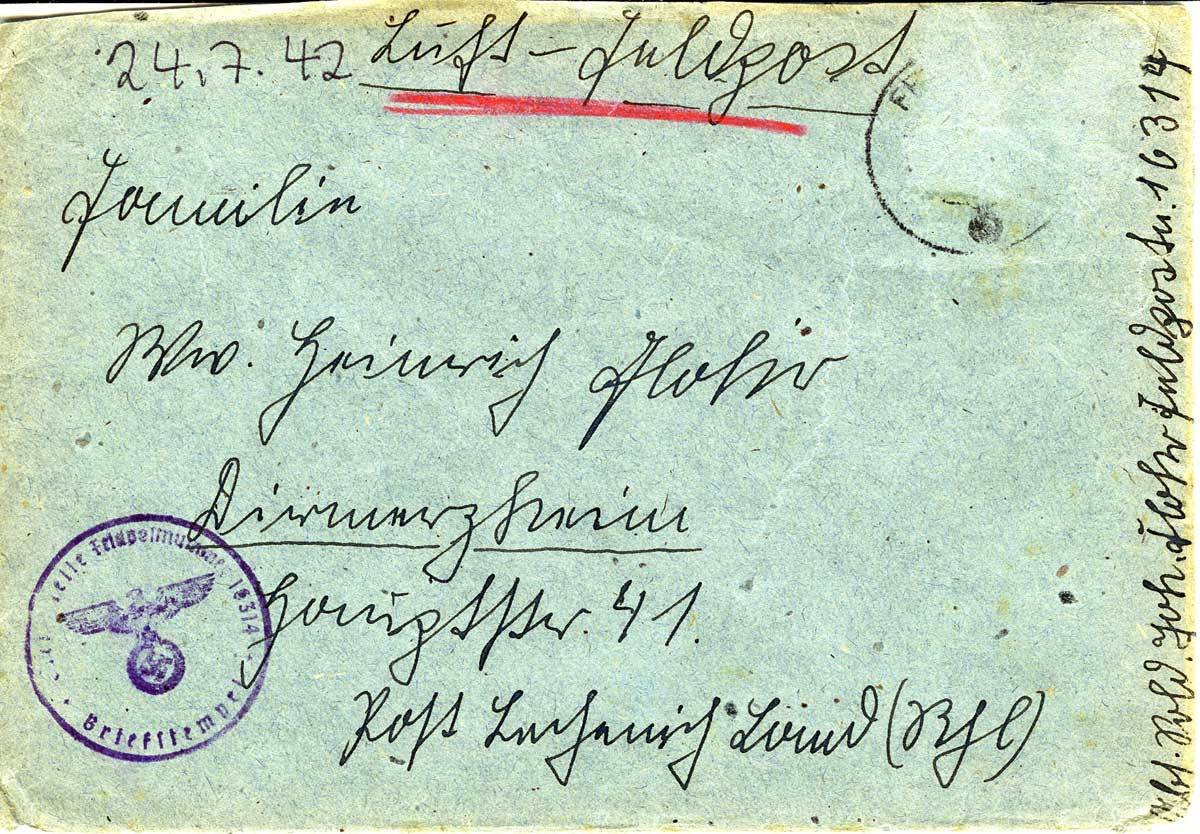 24.7.42 Luft-Feldpost
Familie
Ww. Heinrich Flohr
Dirmerzheim
Hauptstr. 41.
Post Lechenich Land (Rhl)
Sold. Joh. Flohr Feldpostn. 16314
Feldpostnummer 16314
Briefstempel